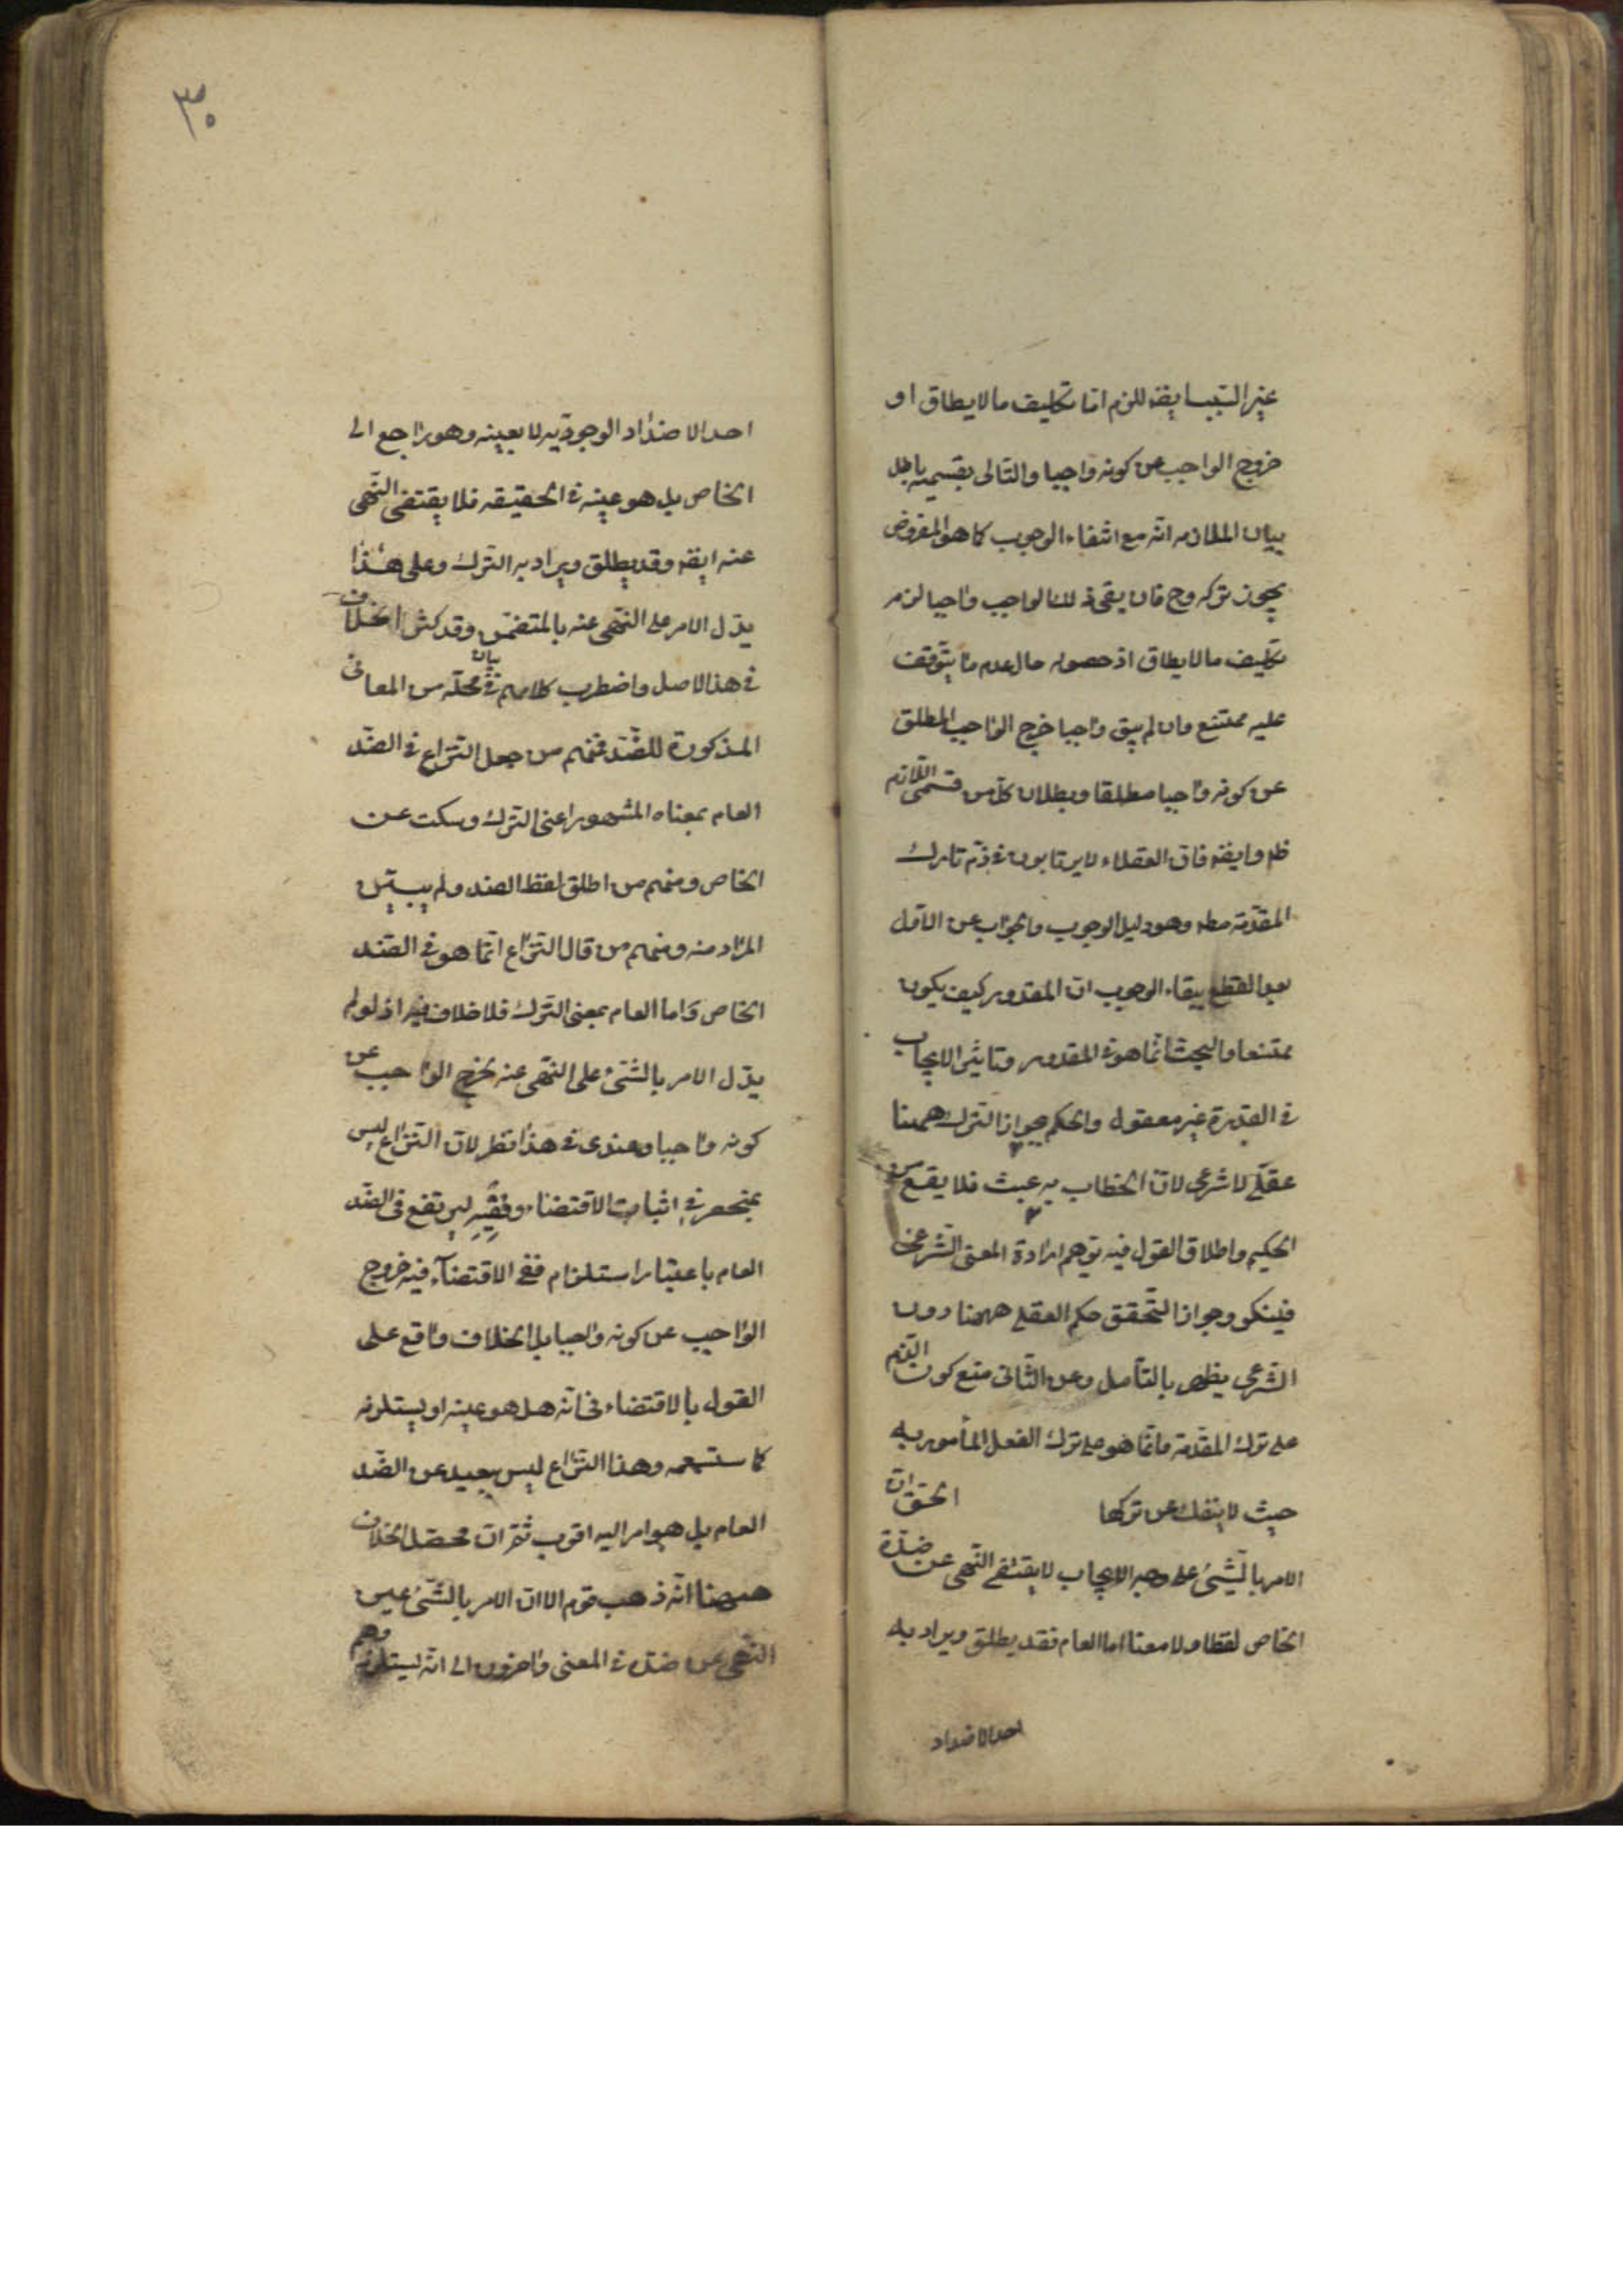 غير السبب ايضه للزم اما تكليف ما لا يطاق او
خروج الواجب عن كونه واجبا والتالى بقسميه باطل
بيان الملازمه انه مع انتفاء الوجوب كما هو المفروض
يجوز تركه وح فان بقى ذلك الواجب واجبا لزم
تكليف ما لا يطاق اذ حصوله حال عدم ما يتوقف
عليه ممتنع وان لم يبق واجبا خرج الواجب المطلق
عن كونه واجبا مطلقا وبطلان كل من قسمى اللازم
ظه وايضه فان العقلاء لا يرتابون فى ذم تارك
المقدمة مطه وهو دليل الوجوب والجواب عن الاول
بعد القطع ببقاء الوجوب ان المقدور كيف يكون
ممتنعا والبحث انما هو فى المقدور وتاثير الايجاب
فى القدرة غير معقول والحكم بجواز الترك ههنا
عقلى لا شرعى لان الخطاب به عبث فلا يقع من
الحكيم واطلاق القول فيه يوهم ارادة المعنى الشرعى
فينكر وجواز التحقق حكم العقلى ههنا دون
الشرعى يظهر بالتأمل وعن الثانى منع كون الذم
على ترك المقدمة وانما هو على ترك الفعل المأمور به
حيث لا ينفك عن تركها الحق ان
الامر بالشىء على وجه الايجاب لا يقتضى النهى عن ضده
الخاص لفظا ولا معنا اما العام فقد يطلق ويراد به
احد الاضداد
٣٠
احد الاضداد الوجوديه لا بعينه وهو راجع الى
الخاص بل هو عينه فى الحقيقه فلا يقتضى النهى
عنه ايضه وقد يطلق ويراد به الترك وعلى هذا
يدل الامر على النهى عنه بالمتضمن وقد كثر الخلاف
فى هذا الاصل واضطرب كلامهم فى بيان محله من المعانى
المذكورة للضد فمنهم من جعل النزاع فى الضد
العام بمعناه المشهور اعنى الترك وسكت عن
الخاص ومنهم من اطلق لفظ الضد ولم يبين
المراد منه ومنهم من قال النزاع انما هو فى الضد
الخاص واما العام بمعنى الترك فلا خلاف فيه اذ لو لم
يدل الامر بالشىء على النهى عنه لخرج الواجب عن
كونه واجبا وعندى فى هذا نظر لان النزاع ليس
بمنحصر فى اثبات الاقتضاء ونفيه ليرتفع فى الضد
العام باعتبار استلزام نفى الاقتضآء فيه خروج
الواجب عن كونه واجبا بل الخلاف واقع على
القول بالاقتضاء فى انه هل هو عينه او يستلزمه
كما ستسمعه وهذا النزاع ليس ببعيد عن الضد
العام بل هو اليه اقرب ثم ان محصل الخلاف
ههنا انه ذهب قوم الا ان الامر بالشىء عين
النهى عن ضده فى المعنى واخرون الى انه يستلزمه وهم